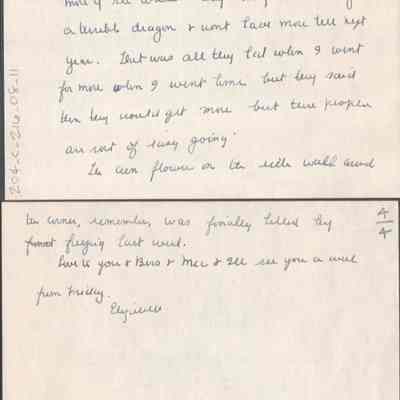 a terrible dragon & wont have more till next
year. That was all they had when I went
for more when I went home but they said
then they would get more but these people
are sort of easy going.
The corn flower on the wall around
the corner, remember, was finally killed by
freezing last week.
Love to you & Bus & Mec & I'll see you a week
from Friday.
4/4
204-C-216-08-11